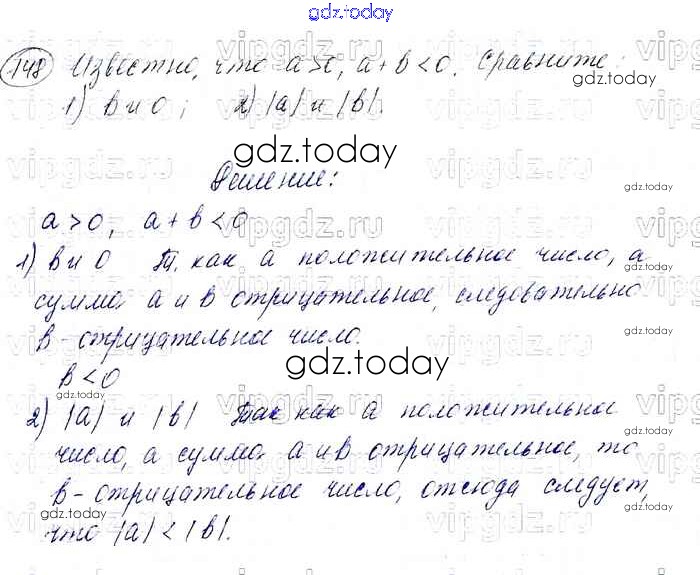 gdz.today
148 Известно, что a>0, a+b<0. Сравните:
1) b и 0; 2) |a| и |b|.
gdz.today
gdz.today
Решение:
gdz.today
a>0, a+b<0
1) b и 0 Т. как a положительное число, а
сумма a и b отрицательное, следовательно
b - отрицательное число.
gdz.today
gdz.today
b<0
2) |a| и |b| Так как a положительное
gdz.today
число, а сумма a и b отрицательное, то
b - отрицательное число, отсюда следует,
gdz.today
что |a|<|b|.